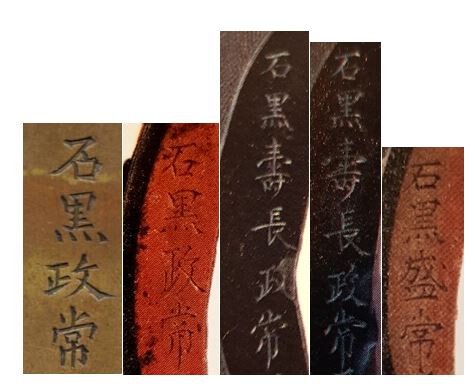 石黒政常
石黒政常
石黒壽長政常
石黒壽長政常
石黒盛常